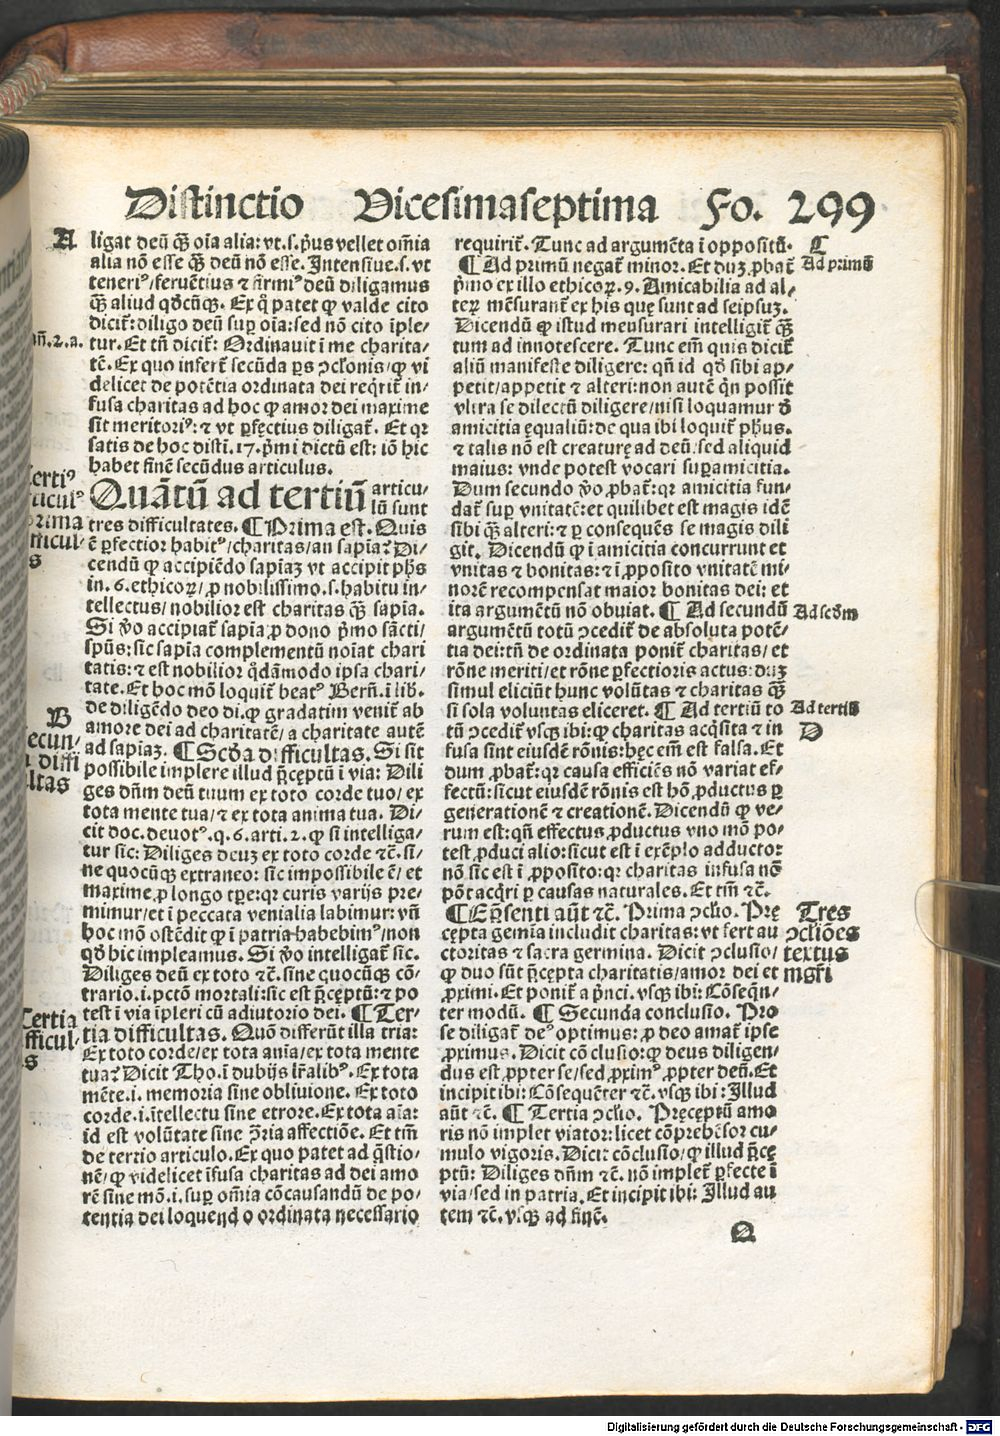 Distinctio Vicesimaseptima Fo. 299
A
ligat deū q̄ꝫ oīa alia: vt .s. pꝰus vellet om̄ia
alia nō esse q̄ꝫ deū nō esse. Intensiue .s. vt
teneriꝰ/feruētius ⁊ firmiꝰ deū diligamus
q̄ꝫ aliud qd̄cūqꝫ. Ex q̄ patet ꝙ valde cito
dicit̄: diligo deū suꝑ oīa: sed nō cito īple/
tur. Et tn̄ dicit̄: Ordinauit ī me charita/
tē. Ex quo infert̄ secūda ꝑs ↄclōnis/ꝙ vi
delicet de potētia ordinata dei reqͥrit̄ in/
fusa charitas ad hoc ꝙ amor dei maxime
sit meritoriꝰ: ⁊ vt ꝑfectius diligat̄. Et qꝛ
satis de hoc disti. 17. pͥmi dictū est: iō hic
habet finē secūdus articulus.
.2.a.
Quātū ad tertiū articu/
lū sunt
tres difficultates. ¶ Prima est. Quis
ē ꝑfectior habitꝰ/charitas/an sapīa? Di/
cendū ꝙ accipiēdo sapiaꝫ vt accipit ph̄s
in .6. ethicoꝝ/ꝓ nobilissimo .s. habitu in/
tellectus/nobilior est charitas q̄ꝫ sapia.
Si v̄o accipiat̄ sapia ꝓ dono pͥmo sācti/
spūs: sic sapīa complementū noīat chari
tatis: ⁊ est nobilior qͥdāmodo ipsa chari/
tate. Et hoc mō loquit̄ beatꝰ Bern̄. ī lib̄.
de diligēdo deo di. ꝙ gradatim venit̄ ab
amore dei ad charitatē/a charitate autē
ad sapiaꝫ. ¶ Scd̄a difficultas. Si sit
possibile implere illud p̄ceptū ī via: Dili
ges dn̄m deū tuum ex toto corde tuo/ex
tota mente tua/⁊ ex tota anima tua. Di/
cit doc. deuotꝰ. q. 6. arti. 2. ꝙ si intelliga/
tur sic: Diliges deuꝫ ex toto corde ⁊c̄. si/
ne quocūqꝫ extraneo: sic impossibile ē/et
maxime ꝓ longo tꝑe: qꝛ curis varijs pre/
mimur/et ī peccata venialia labimur: vn̄
hoc mō ostēdit ꝙ ī patria habebimꝰ/non
qd̄ hic impleamus. Si v̄o intelligat̄ sic.
Diliges deū ex toto ⁊c̄. sine quocūqꝫ cō/
trario .i. pctōm mortali: sic est p̄ceptū: ⁊ po
test ī via īpleri cū adiutorio dei. ¶ Ter/
tia difficultas. Quō differūt illa tria:
Ex toto corde/ex tota anīa/ex tota mente
tua? Dicit Tho. ī dubijs lr̄alibꝰ. Ex tota
mēte .i. memoria sine obliuione. Ex toto
corde .i. ītellectu sine errore. Ex tota aīa:
id est volūtate sine ꝯͣria affectiōe. Et tm̄
de tertio articulo. Ex quo patet ad q̄stio/
nē/ꝙ videlicet īfusa charitas ad dei amo
rē sine mō .i. suꝑ om̄ia cōcausandū de po/
tentia dei loquendo ordinata necessario
B
requirit̄. Tunc ad argumēta ī oppositū.
¶ Ad primū negat̄ minor. Et duꝫ ꝓbat̄
pͥmo ex illo ethicoꝝ. 9. Amicabilia ad al/
teꝝ mēsurant̄ ex his quę sunt ad seipsuꝫ.
Dicendū ꝙ istud mensurari intelligit̄ q̄ꝫ
tum ad innotescere. Tunc em̄ quis dicit̄
aliū manifeste diligere: qn̄ id qd̄ sibi ap/
petit/appetit ⁊ alteri: non autē qͥn possit
vltra se dilectū diligere/nisi loquamur d̄
amicitia ęqualiū: de qua ibi loquit̄ ph̄us.
⁊ talis nō est creaturę ad deū/sed aliquid
maius: vnde potest vocari suꝑamicitia.
Dum secundo v̄o ꝓbat̄: qꝛ amicitia fun/
dat̄ suꝑ vnitatē: et quilibet est magis idē
sibi q̄ꝫ alteri: ⁊ ꝑ consequēs se magis dili
git. Dicendū ꝙ ī amicitia concurrunt et
vnitas ⁊ bonitas: ⁊ ī ꝓposito vnitatē mi/
norē recompensat maior bonitas dei: et
ita argumētū nō obuiat. ¶ Ad secundū
argumētū totū ↄcedit̄ de absoluta potē/
tia dei: tn̄ de ordinata ponit̄ charitas/et
rōne meriti/et rōne ꝑfectioris actus: duꝫ
simul eliciūt hunc volūtas ⁊ charitas q̄ꝫ
si sola voluntas eliceret. ¶ Ad tertiū to
tū ↄcedit̄ vsqꝫ ibi: ꝙ charitas acqͥsita ⁊ in
fusa sint eiusdē rōnis: hęc em̄ est falsa. Et
dum ꝓbat̄: qꝛ causa efficiēs nō variat ef/
fectū: sicut eiusdē rōnis est hō ꝓductus ꝑ
generationē ⁊ creationē. Dicendū ꝙ ve/
rum est: qn̄ effectus ꝓductus vno mō po/
test ꝓduci alio: sicut est ī exēplo adducto:
nō sic est ī ꝓposito: qꝛ charitas infusa nō
pōt acqͥri ꝑ causas naturales. Et tm̄ ⁊c̄.
¶ Ex p̄senti aūt ⁊c̄. Prima ↄclō. Prę
cępta gemīa includit charitas: vt fert au
ctoritas ⁊ sacra germina. Dicit ↄclusio/
ꝙ duo sūt p̄cepta charitatis/amor dei et
ꝓximi. Et ponit̄ a pͥnci. vsqꝫ ibi: Cōseqn̄/
ter modū. ¶ Secunda conclusio. Pro
se diligat̄ deꝰ optimus: ꝓ deo amat̄ ipse
ꝓximus. Dicit cōclusio: ꝙ deus diligen/
dus est ꝓpter se/sed ꝓximꝰ ꝓpter deū. Et
incipit ibi: Cōsequēter ⁊c̄. vsqꝫ ibi: Illud
aūt ⁊c̄. ¶ Tertia ↄclō. Pręceptū amo
ris nō implet viator: licet cōprehēsor cu/
mulo vigoris. Dicit cōclusio/ꝙ illud p̄cę
ptū: Diliges dn̄m ⁊c̄. nō implet̄ ꝑfecte ī
via/sed in patria. Et incipit ibi: Illud au
tem ⁊c̄. vsqꝫ ad finē.
C
Ad primū
Ad scd̄m
Ad tertiū
D
Tres
ↄcliōes
textus
mgr̄i
Digitalisierung gefördert durch die Deutsche Forschungsgemeinschaft - DFG